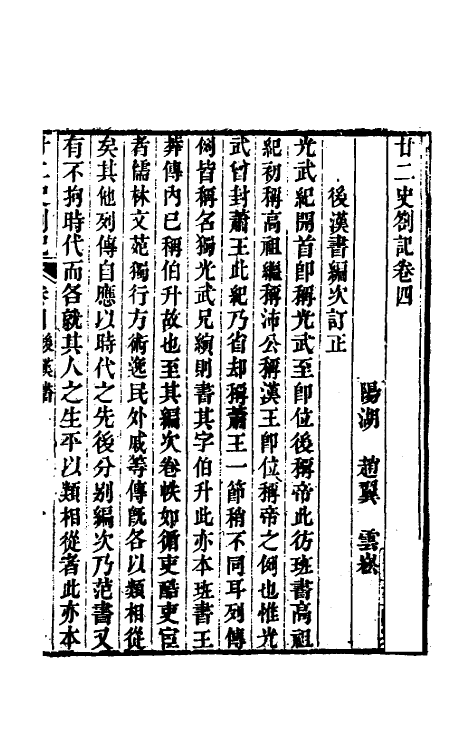 廿二史劄記卷四
陽湖 趙翼 雲崧
後漢書編次訂正
光武紀開首卽稱光武至卽位後稱帝此彷班書高祖
紀初稱高祖繼稱沛公稱漢王卽位稱帝之例也惟光
武曾封蕭王此紀乃省却稱蕭王一節稍不同耳列傳
例皆稱名獨光武兄縯則書其字伯升此亦本班書王
莽傳內已稱伯升故也至其編次卷帙如循吏酷吏宦
者儒林文苑獨行方術逸民外戚等傳旣各以類相從
矣其他列傳自應以時代之先後分别編次乃范書又
有不拘時代而各就其人之生平以類相從者此亦本
廿二史劄記 卷四 後漢書